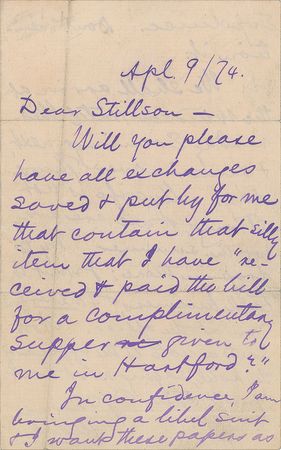 Apl. 9/74.
Dear Stillson —
Will you please
have all exchanges
saved & put by for me
that contain that silly
item that I have "re-
ceived & paid the bill
for a complimentary
supper given to
me in Hartford?"
In confidence, I am
bringing a libel suit
& I want these papers as